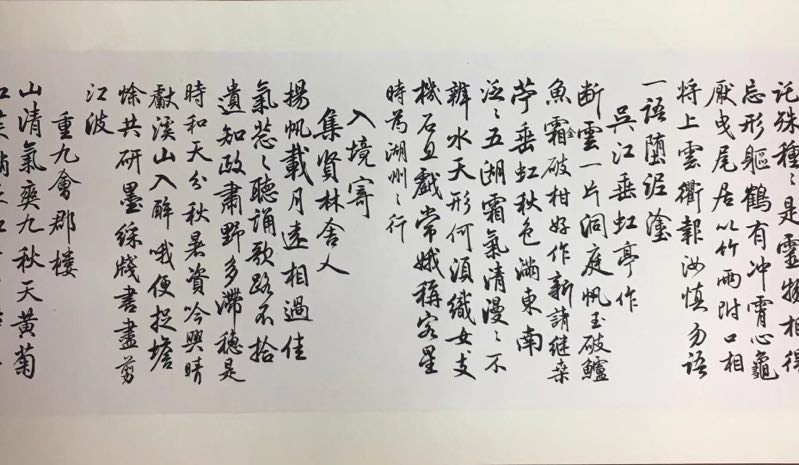 託殊種〻是靈物相得
忘形軀鶴有冲霄心龜
厭曳尾居以竹兩附口相
將上雲衢報汝慎勿語
一語墮泥塗
吳江垂虹亭作
断雲一片洞庭帆玉破鱸
魚霜金破柑好作新詩継桑
苧垂虹秋色滿東南
泛〻五湖霜氣清漫〻不
辨水天形何須織女支
機石且戲常娥稱客星
時為湖州之行
入境寄
集賢林舍人
揚帆載月遠相過佳
氣葱〻聽誦歌路不拾
遺知政肅野多滯穗是
時和天分秋暑資吟興晴
獻溪山入醉哦便捉蟾
蜍共研墨綵牋書盡剪
江波
重九會郡樓
山清氣爽九秋天黃菊